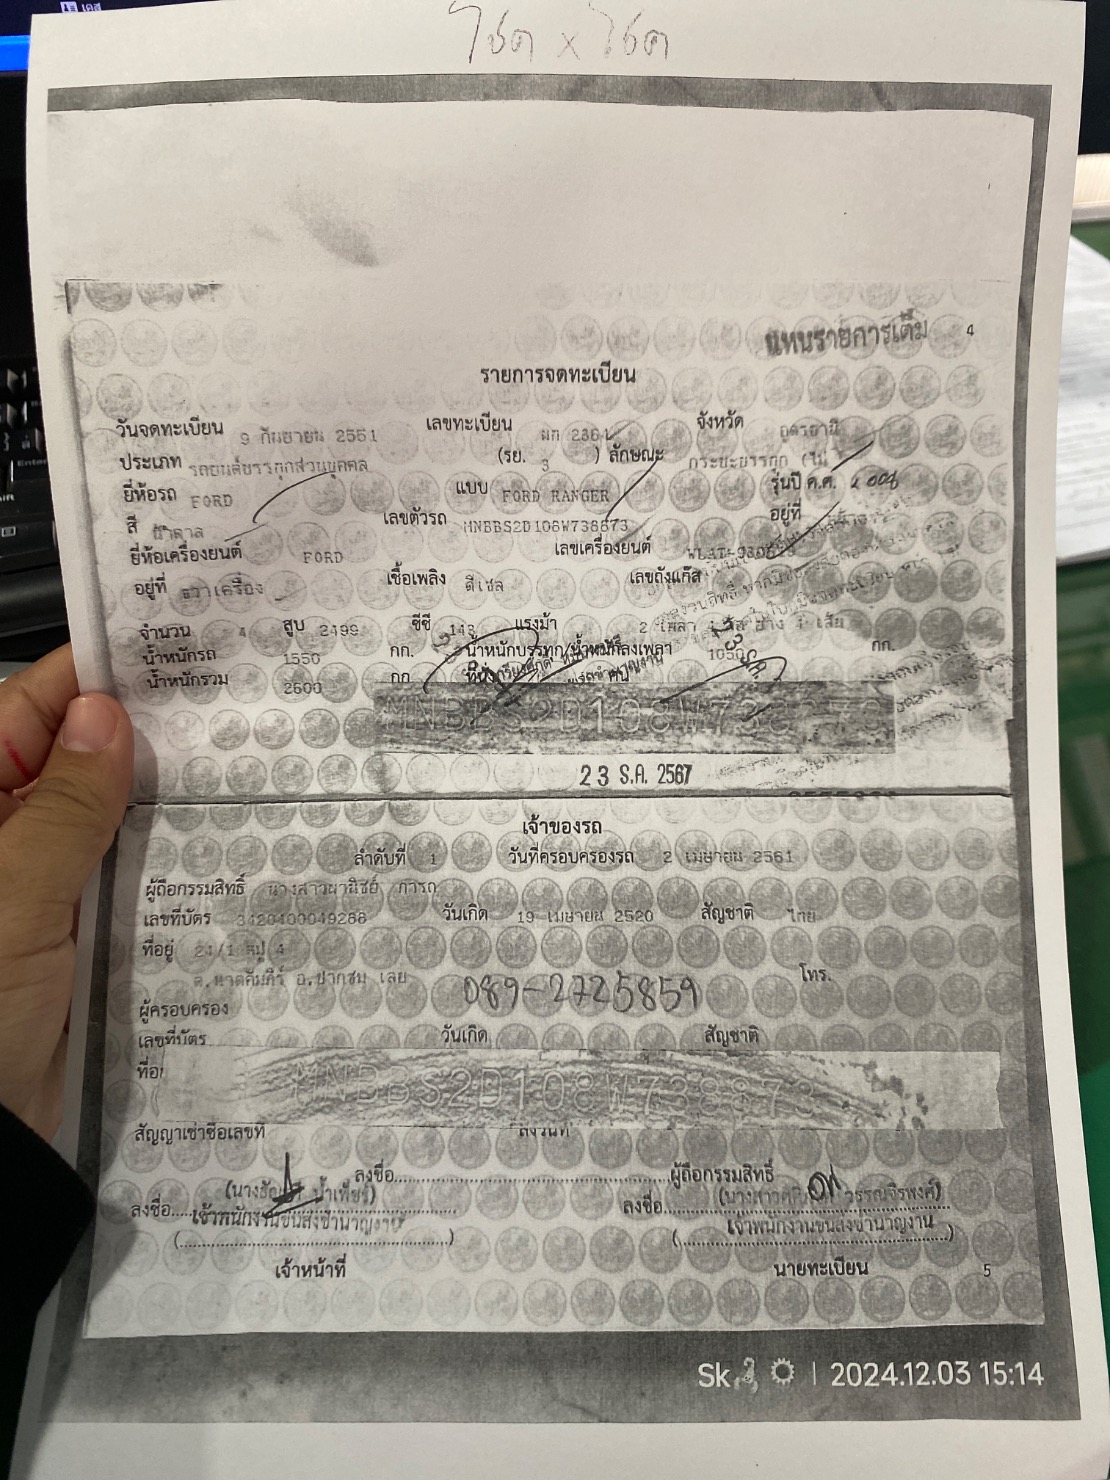 โชค x โชค
แทนรายการเต็ม 4
รายการจดทะเบียน
วันจดทะเบียน 9 กันยายน 2551 เลขทะเบียน ผก 2364 จังหวัด อุดรธานี
ประเภท รถยนต์บรรทุกส่วนบุคคล (รย. 3 ) ลักษณะ กระบะบรรทุก
ยี่ห้อรถ FORD แบบ FORD RANGER รุ่นปี ค.ศ. 2008
สี น้ำตาล เลขตัวรถ MNBBS2D108W738873 อยู่ที่
ยี่ห้อเครื่องยนต์ FORD เลขเครื่องยนต์ WLAT-
อยู่ที่ ขวาเครื่อง เชื้อเพลิง ดีเซล เลขถังแก๊ส
จำนวน 4 สูบ 2499 ซีซี 143 แรงม้า 2 เพลา 4 ล้อ ยาง 4 เส้น
น้ำหนักรถ 1550 กก. น้ำหนักบรรทุก/น้ำหนักลงเพลา 1050 กก.
น้ำหนักรวม 2600 กก
MNBBS2D108W738873
23 ธ.ค. 2567
เจ้าของรถ
ลำดับที่ 1 วันที่ครอบครองรถ 2 เมษายน 2561
ผู้ถือกรรมสิทธิ์ นางสาวผานิชย์ การถ
เลขที่บัตร 3420400049268 วันเกิด 19 เมษายน 2520 สัญชาติ ไทย
ที่อยู่ 21/1 หมู่ 4
ต.หาดคัมภีร์ อ.ปากชม เลย 089-2725859 โทร.
ผู้ครอบครอง
เลขที่บัตร วันเกิด สัญชาติ
ที่อยู่ MNBBS2D108W738873
สัญญาเช่าซื้อเลขที่ ลงวันที่
ลงชื่อ ผู้ถือกรรมสิทธิ์
ลงชื่อ ลงชื่อ
เจ้าพนักงานขนส่งชำนาญงาน เจ้าพนักงานขนส่งชำนาญงาน
เจ้าหน้าที่ นายทะเบียน 5
2024.12.03 15:14